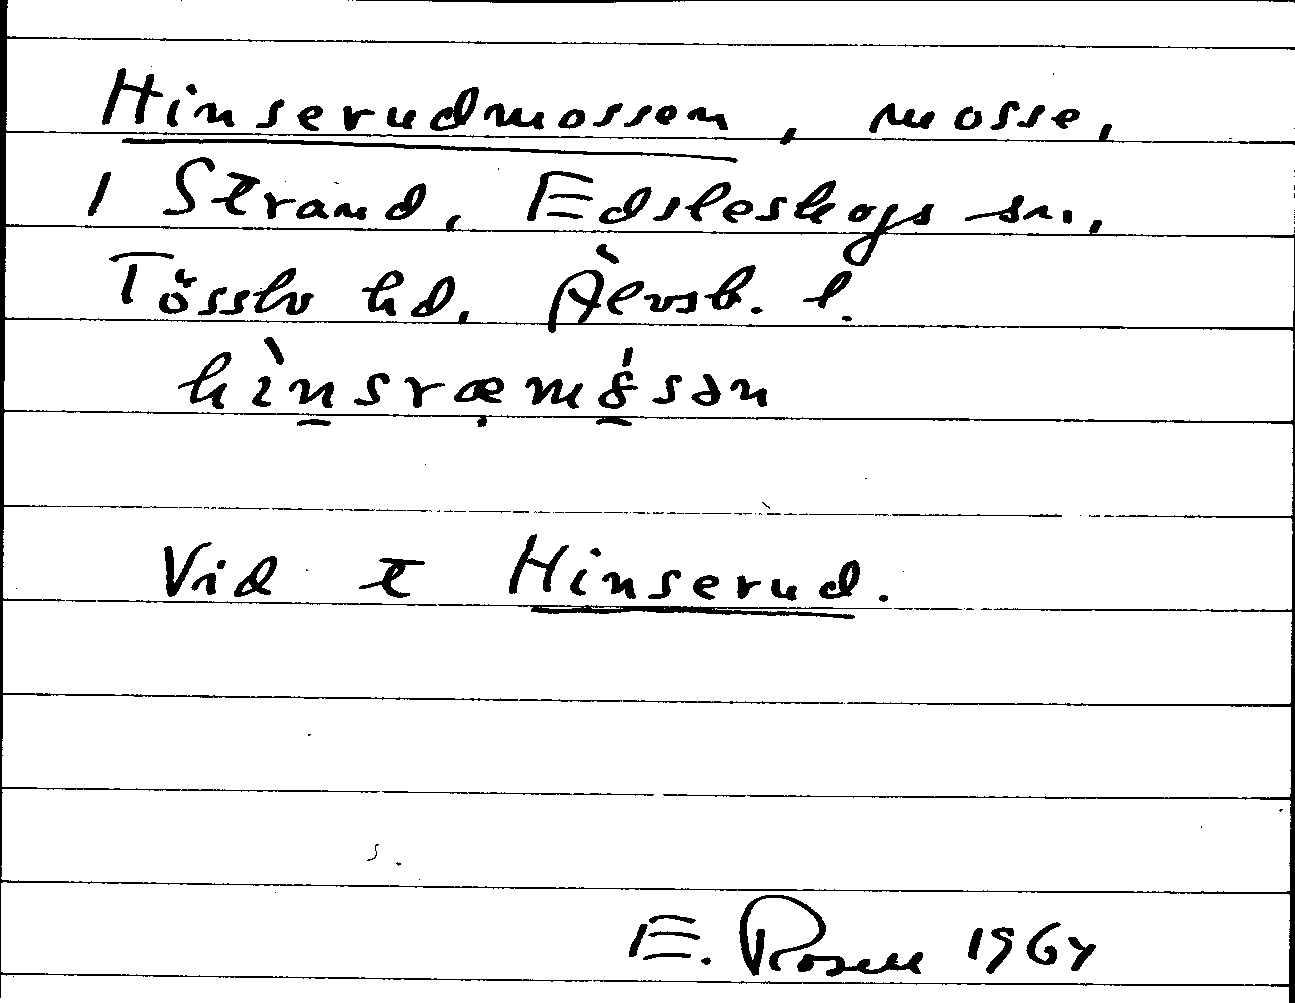 Hinserudmossen, mosse,
1 Strand, Edsleskogs sn.,
Tössbo hd, Älvsb. l.
hìnsræmósən
Vid t Hinserud.
E. Rosell 1964